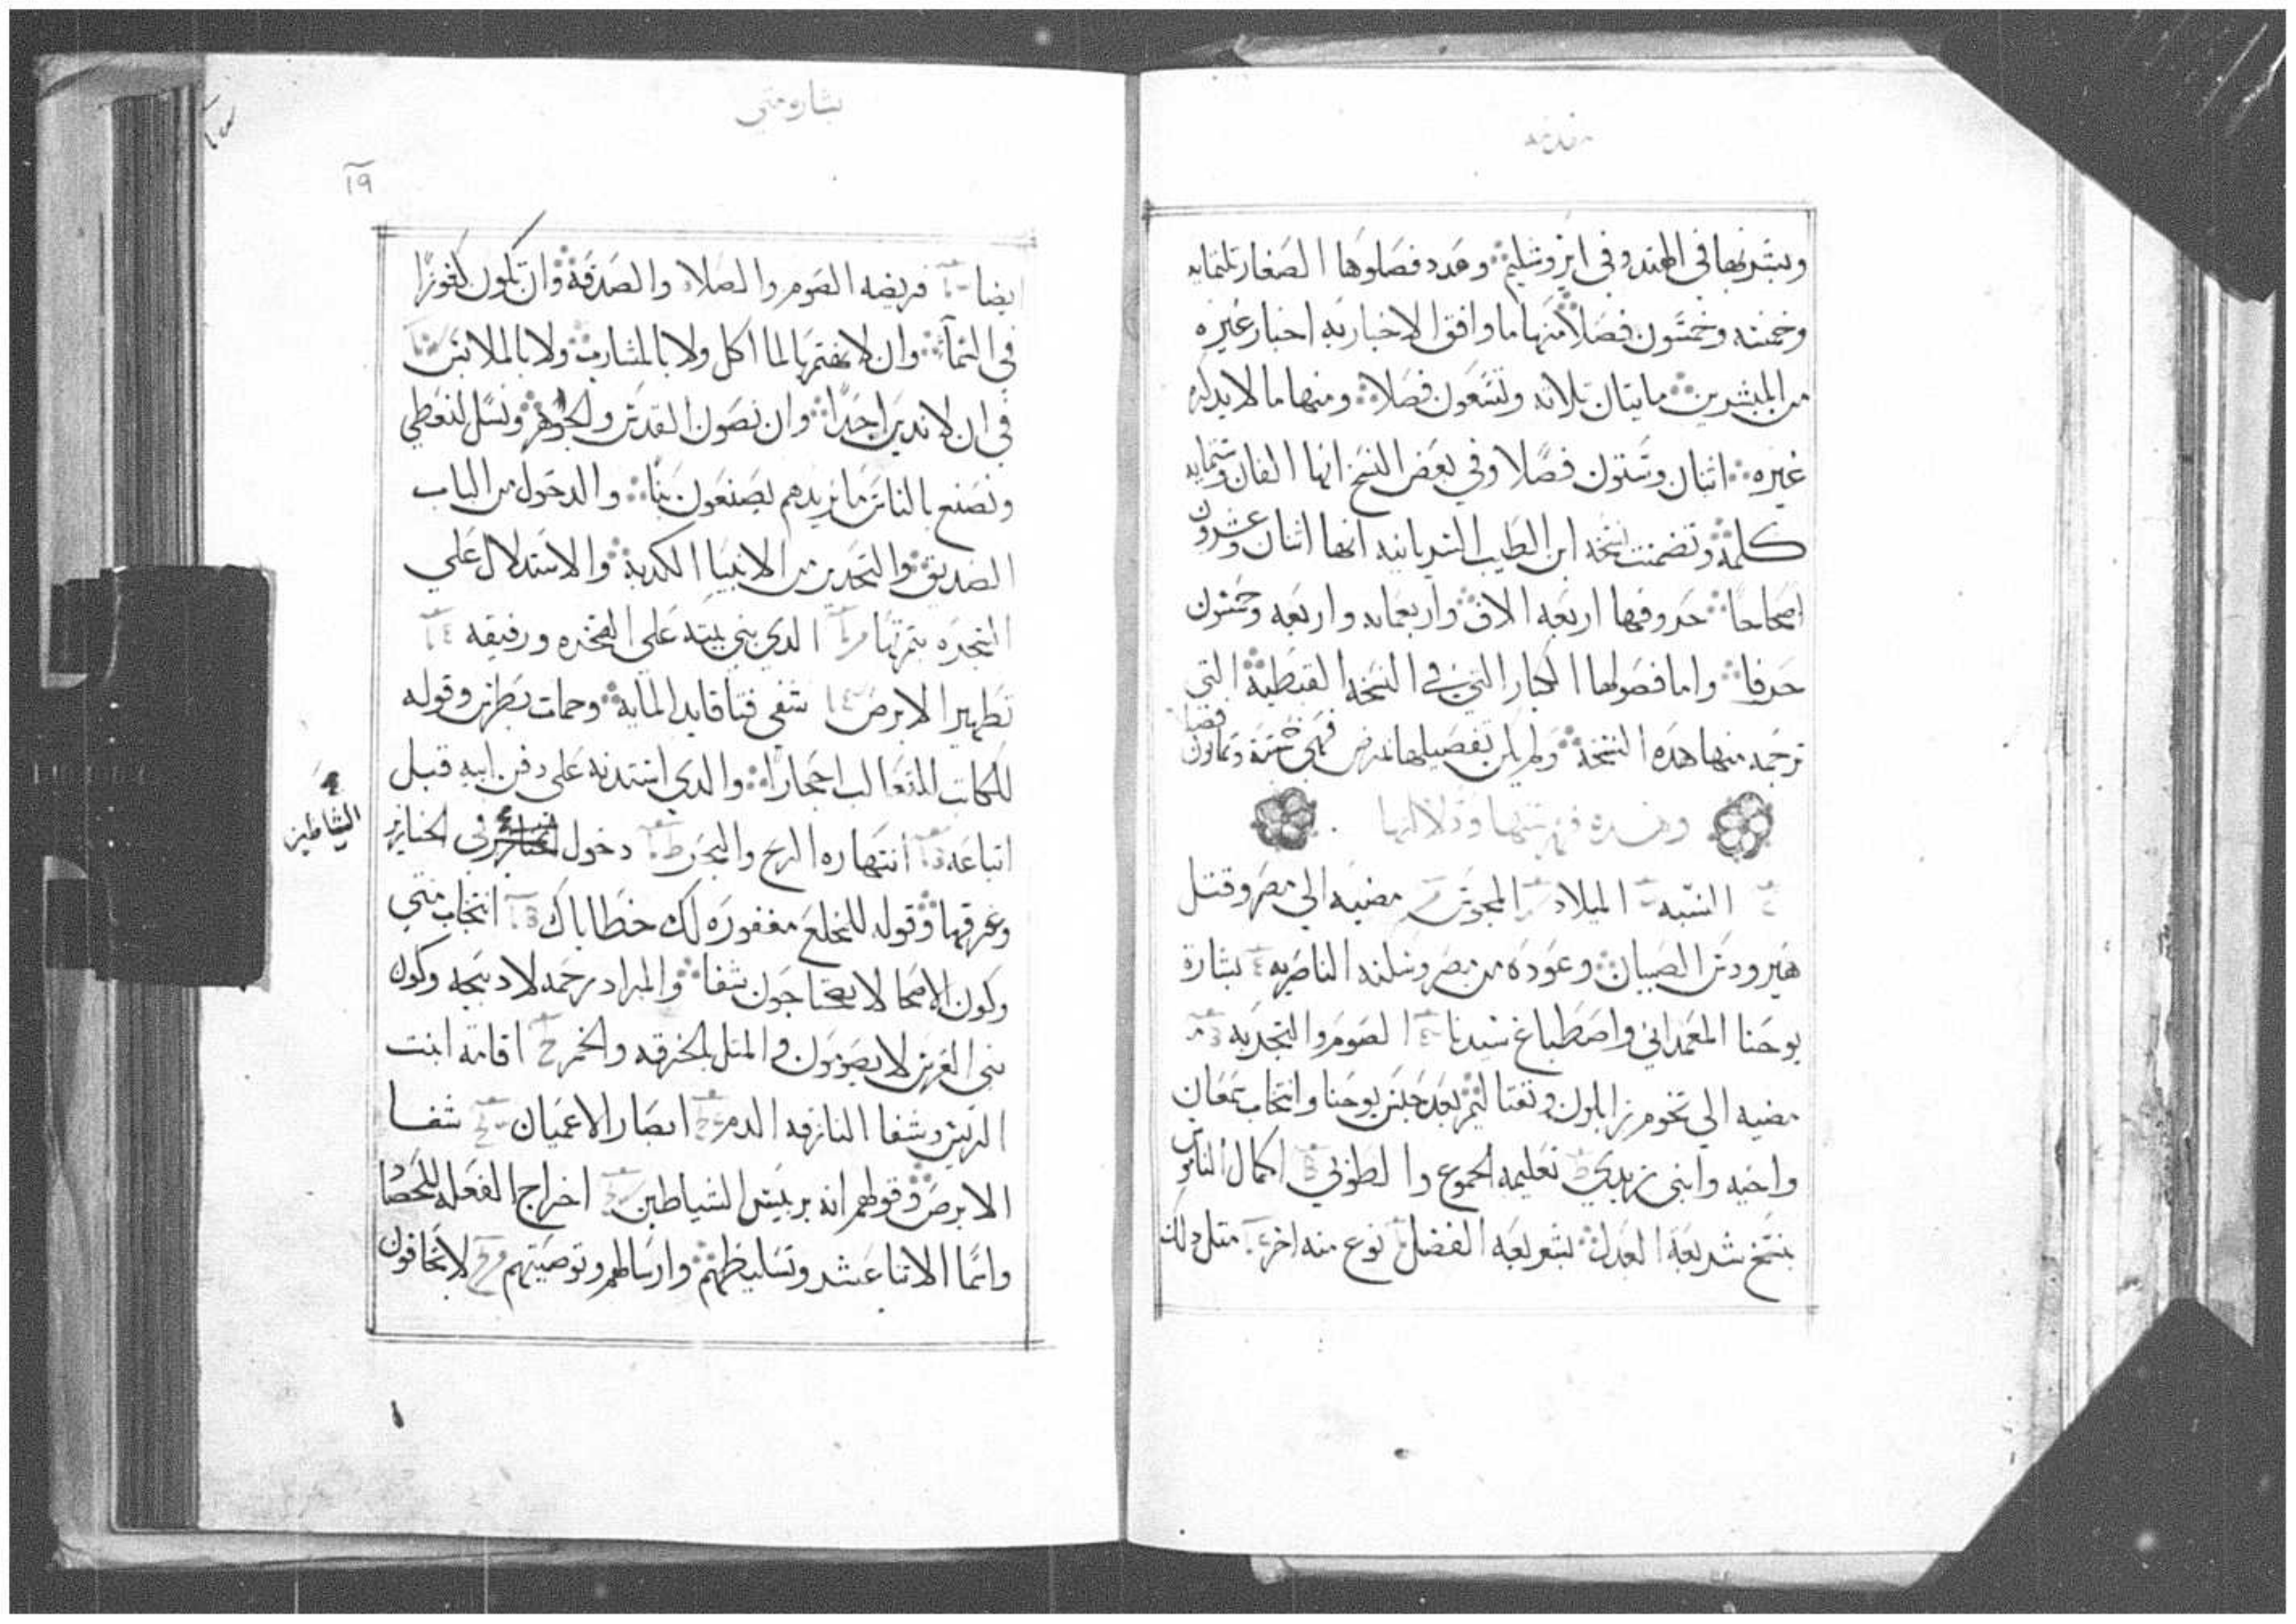 مقدمه
وبشر بها في الهند وفي ايروشليم وعدد فصلوها الصغار تلتمايه
وخمسه وخمسون فصلا منها ما وافق الاخبار به اخبار غيره
من المبشرين مايتان تلاته وتسعون فصلا ومنها ما لا يدكره
غيره اتنان وستون فصلا وفي بعض النسخ انها الفان وستمايه
كلمه وتضمنت نسخه ابن الطيب السريانيه انها اتنان وعشرون
اصحاحا حروفها اربعه الاف واربعمايه واربعه وخمسون
حرفا واما فصولها الكبار التي في النسخه القبطيه التي
ترجمه منها هده النسخه ولم يكن تفصيلها فهي خمسة وتمانون فصلا
وهده فهرستها ودلالتها
النسبه الميلاد المجوس مضيه الي مصر وقتل
هيرودس الصبيان وعوده من مصر وسكنه الناصريه بشارة
يوحنا المعمداني واصطباغ سيدنا الصوم والتجربه
مضيه الي تخوم زابلون ونفتاليم بعد حبس يوحنا وانتخاب سمعان
واخيه وابني زبدي تعليمه الجموع والطوبي اكمال الناموس
بنسخ شريعة العدل بشريعه الفضل نوع منه اخر متل دلك
بشاره متي
١٩
ايضا فريضه الصوم والصلاه والصدقة وان تكون كنوزا
في السما وان لا نهتم بالماكل ولا بالمشارب ولا بالملابس
في ان لا ندين احدا وان نصون القدس والجوهر ونسل لنعطي
ونصنع بالناس ما نريدهم يصنعون بنا والدخول من الباب
الضيق والتحدير من الانبيا الكدبة والاستدلال علي
الشجره بتمرتها الدي بني بيته علي الصخره ورفيقه
تطهير الابرص شفي فتا قايد المايه وحمات بطرس وقوله
للكاتب للتعالب احجارا والدي استدنه علي دفن ابيه قبل
اتباعه انتهاره الريح والبحر دخول في الخنازير
الشياطين
وغرقها وقوله للمخلع مغفوره لك خطاياك انتخاب متي
وكون الاصحا لا يحتاجون شفا والمراد رحمه لا دبيحه وكون
بني العرس لا يصومون والمتل بالخرقه والخمر اقامة ابنت
الريس وشفا النازفه الدم ابصار الاعميان شفا
الابرص وقولهم انه بريس الشياطين اخراج الفعله للحصاد
واسما الاتنا عشر وتسليطهم وارسالهم وتوصيتهم لا تخافون